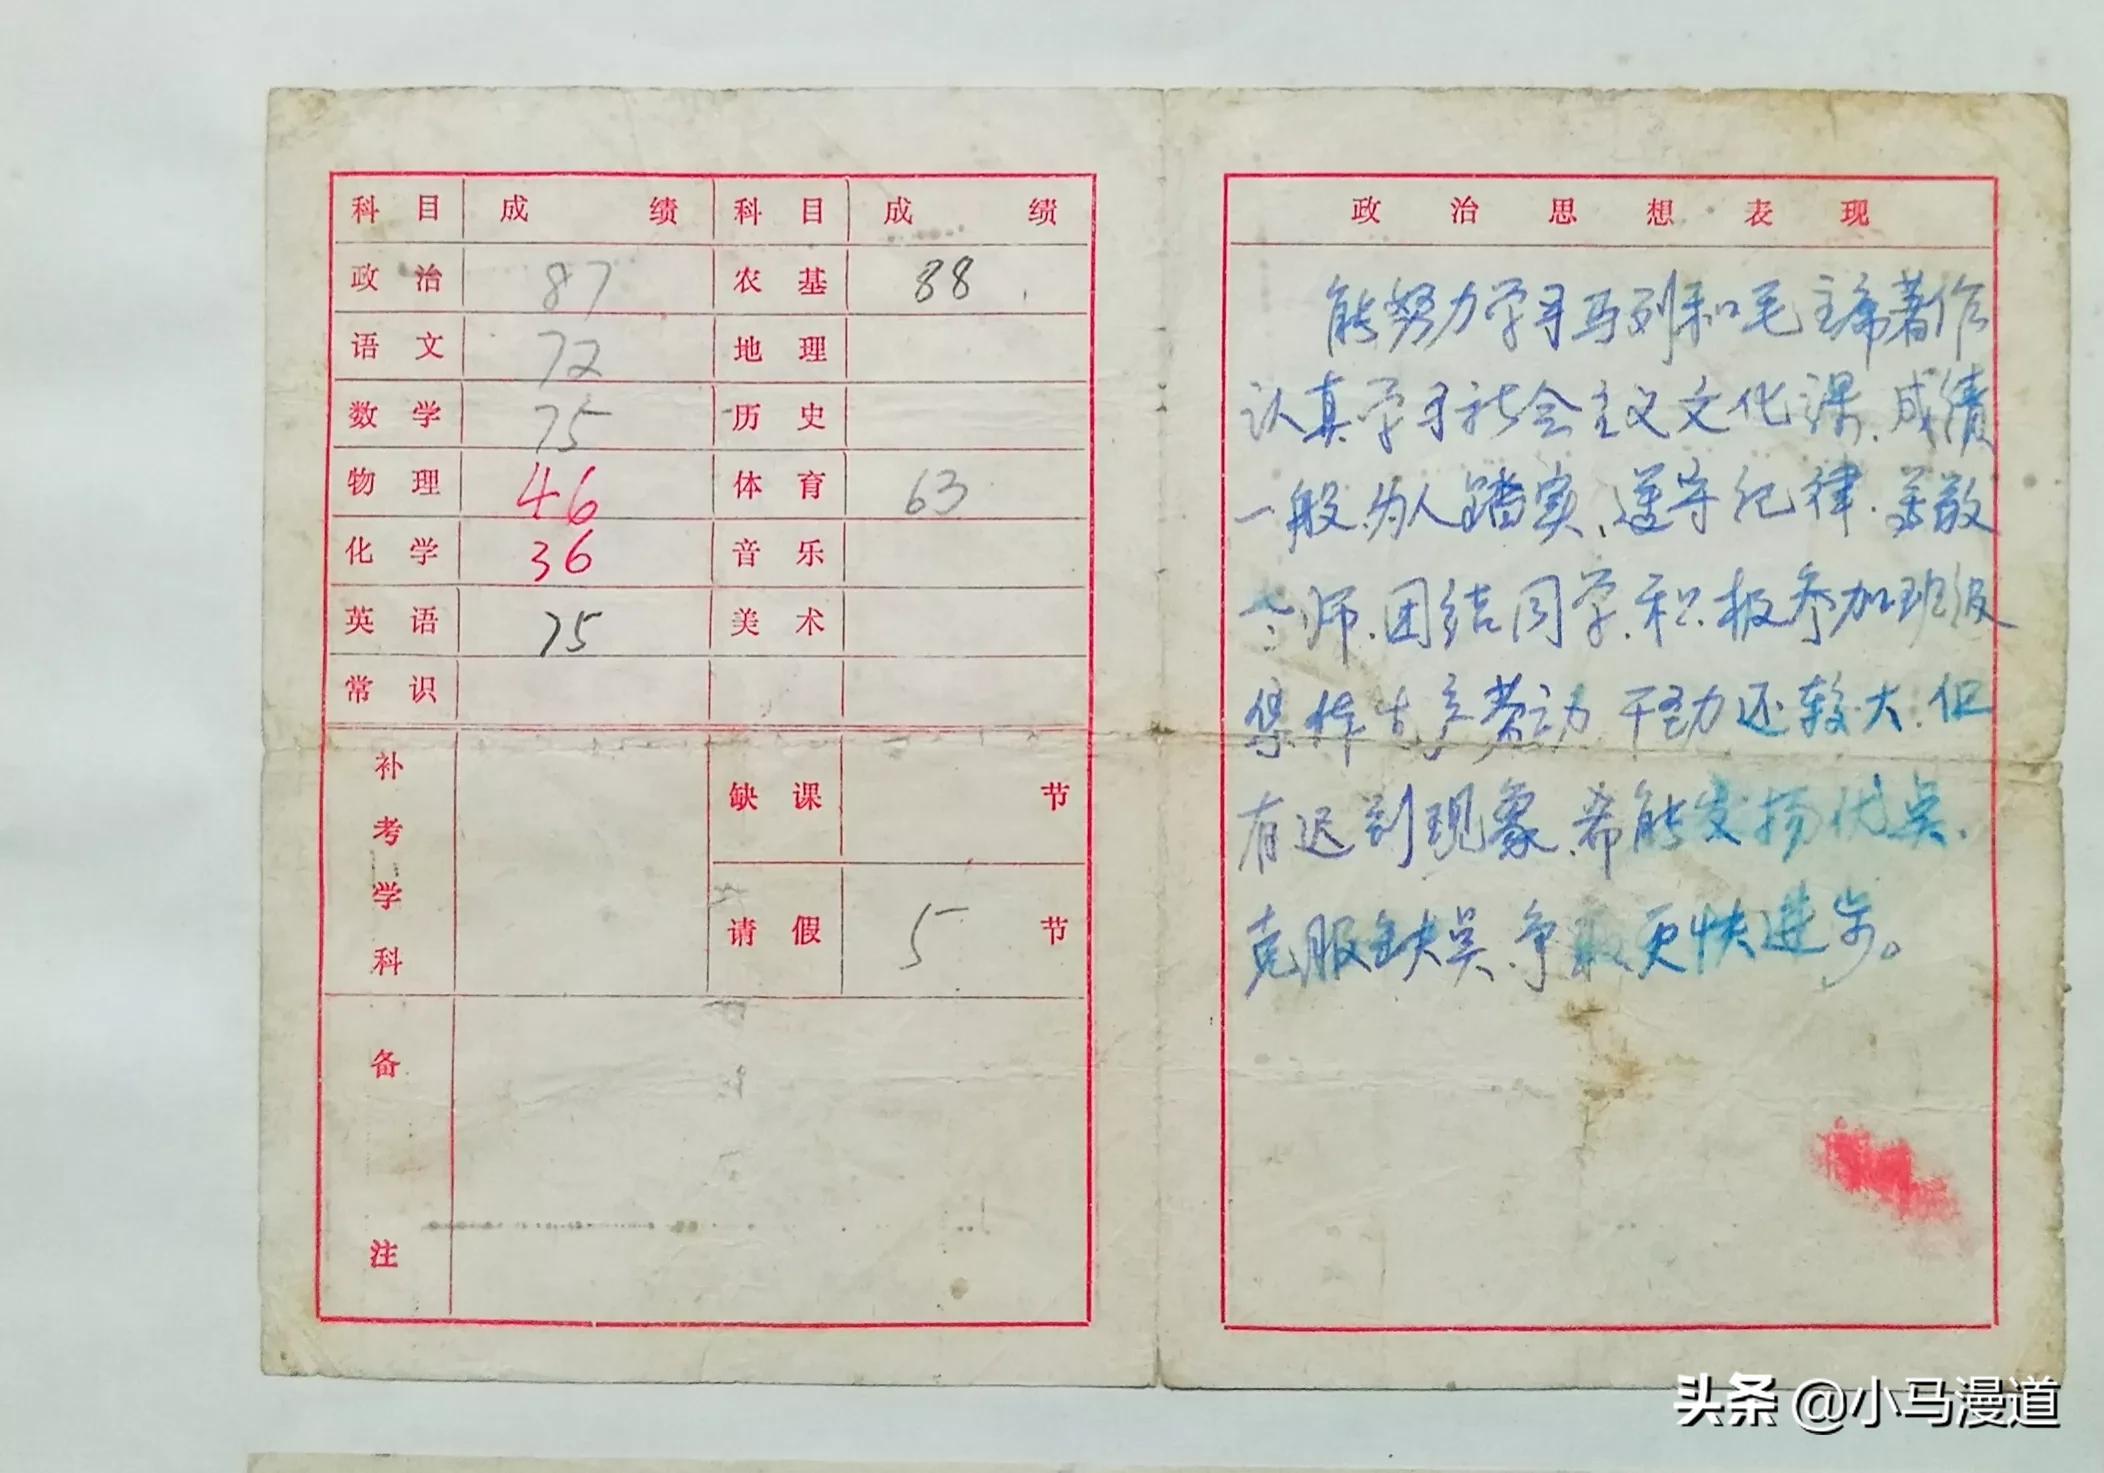 科目 成绩 科目 成绩
政治 87 农基 88
语文 72 地理
数学 75 历史
物理 46 体育 63
化学 36 音乐
英语 75 美术
常识
补考学科 缺课 节
请假 5 节
备注
政治思想表现
能努力学习马列和毛主席著作
认真学习社会主义文化课、成绩
一般、为人踏实、遵守纪律、尊敬
老师、团结同学、积极参加班级
集体生产劳动、干劲还较大、但
有迟到现象、希能发扬优点、
克服缺点、争取更快进步。
头条 @小马漫道